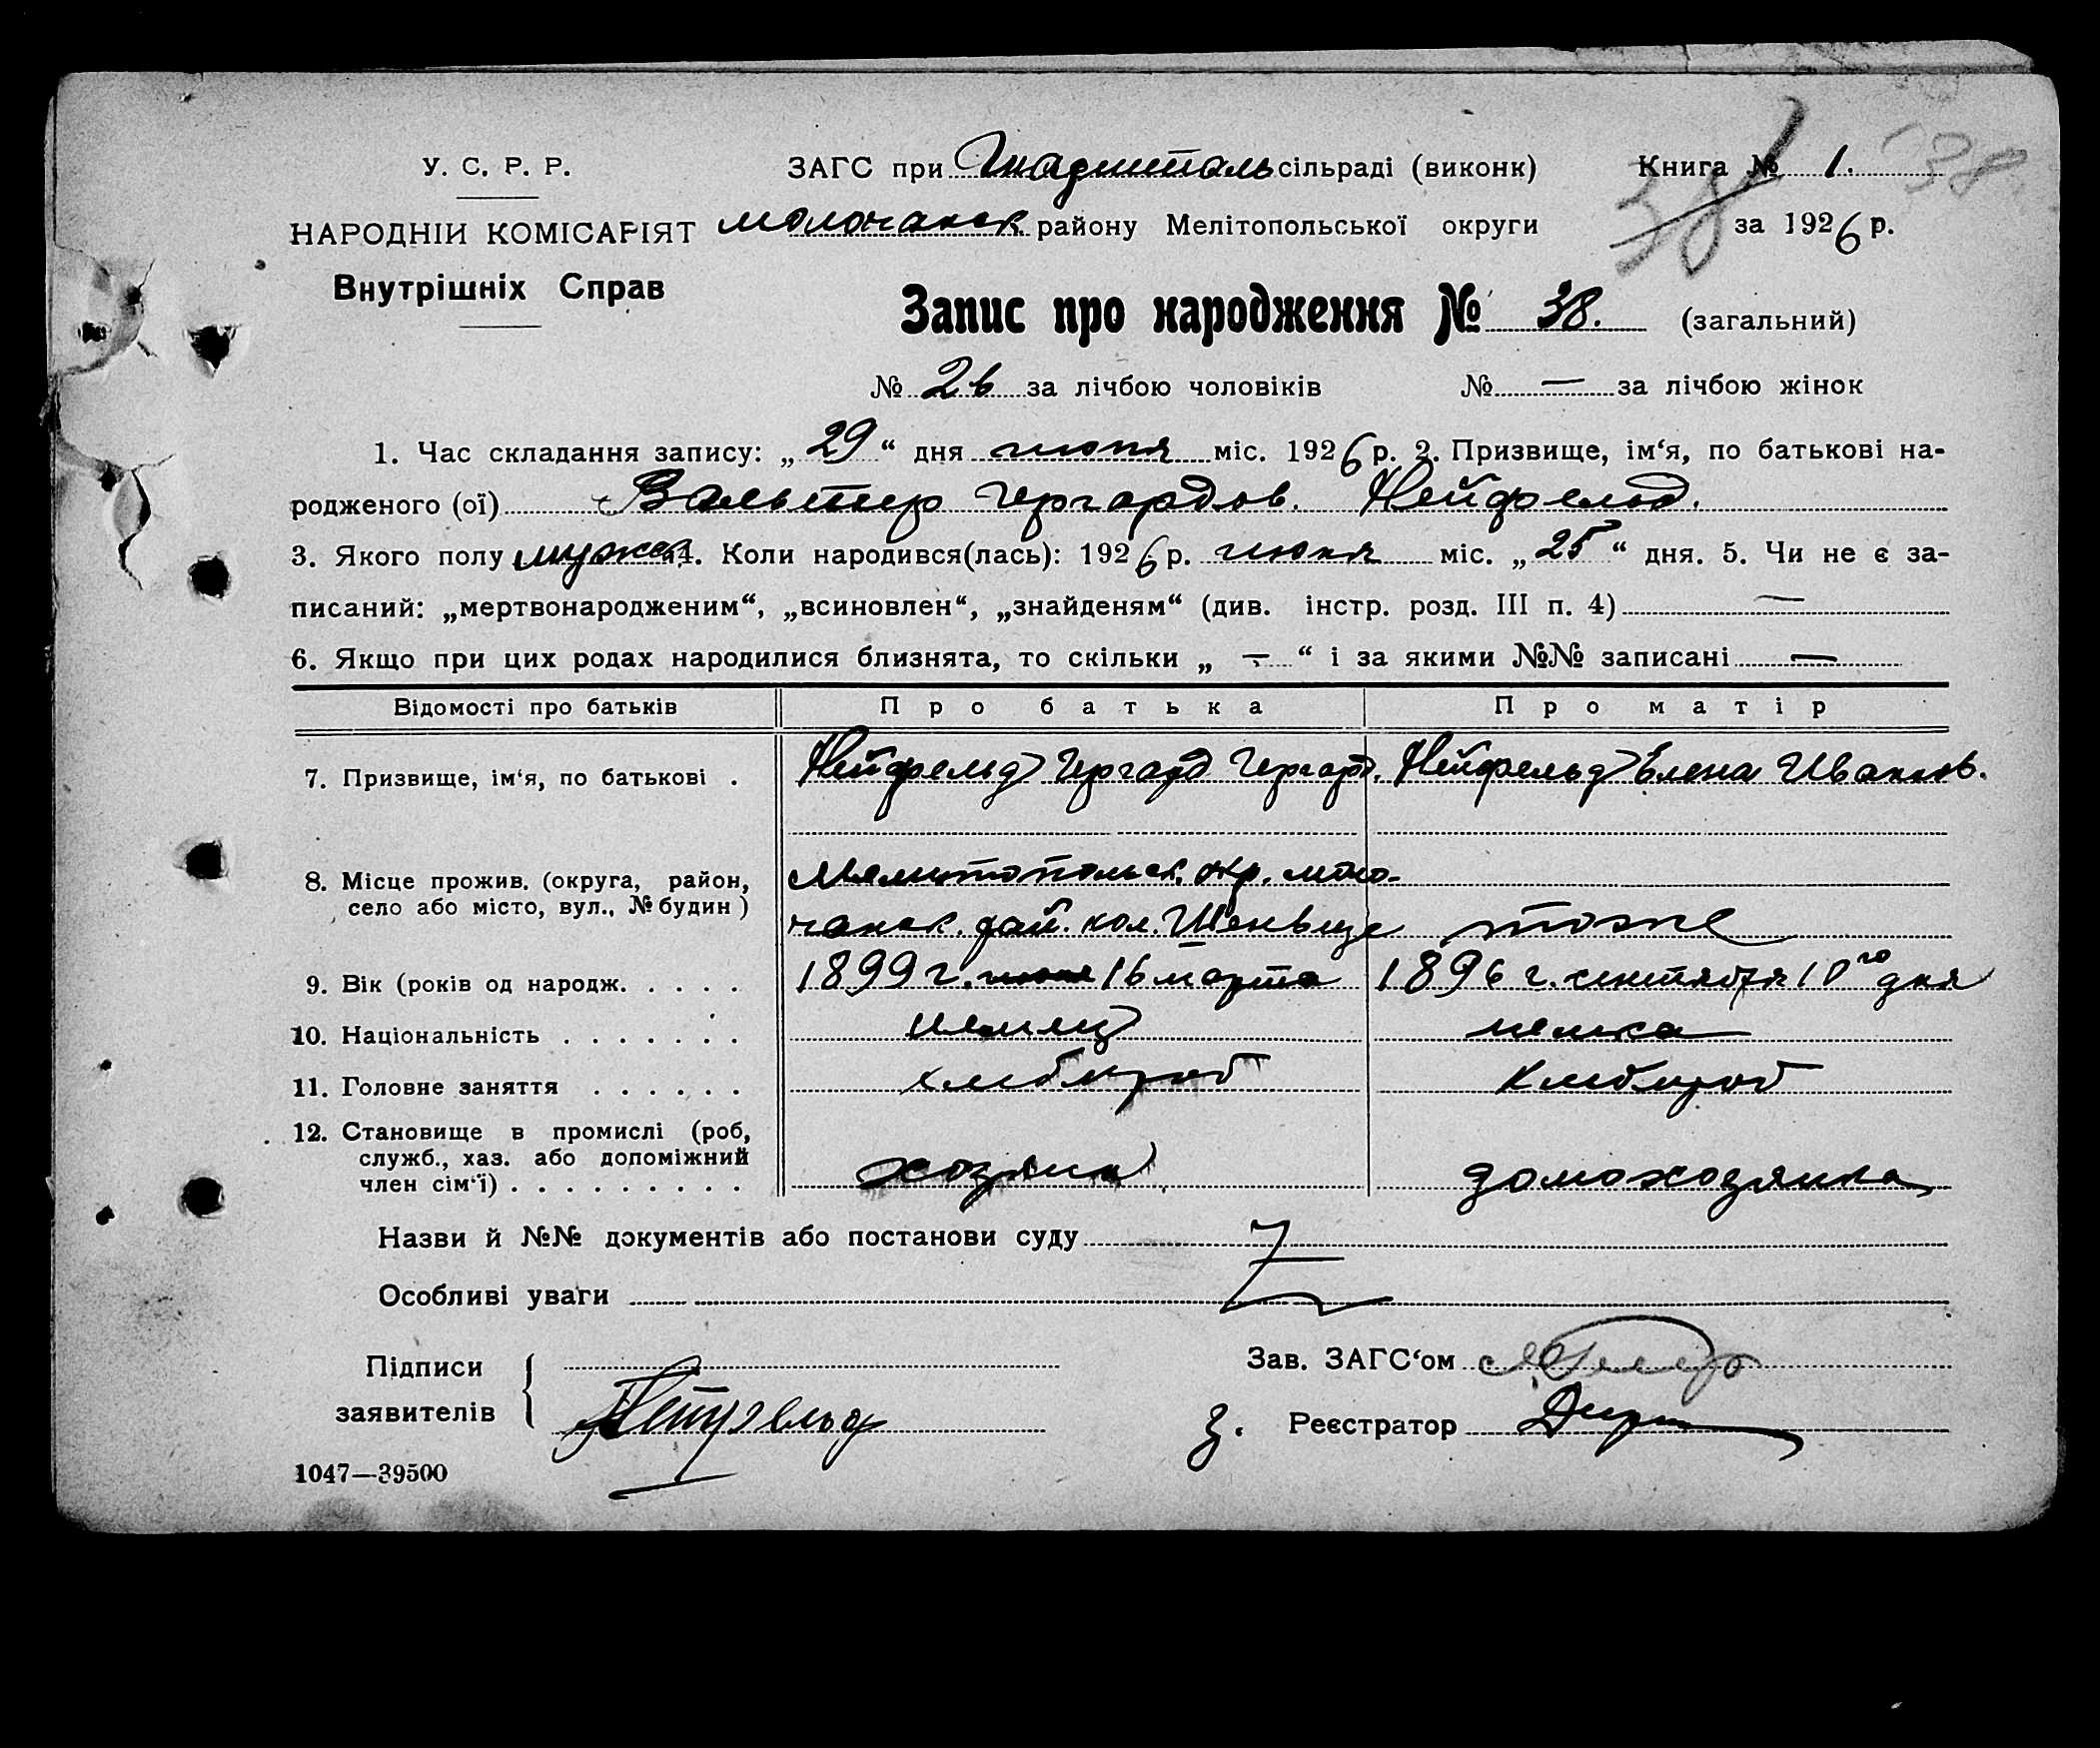 У. С. Р. Р. ЗАГС при Гнадшталь сільраді (виконк) Книга № 1. 38
НАРОДНІИ КОМІСАРІЯТ молочанск району Мелітопольської округи 38 за 1926 р.
Внутрішніх Справ
Запис про народження № 38. (загальний)
№ 26 за лічбою чоловіків № — за лічбою жінок
1. Час складання запису: „ 29 “ дня июня міс. 1926 р. 2. Призвище, ім‘я, по батькові на-
родженого (ої) Вальтер Гергардов. Нейфельд.
3. Якого полу мужск 4. Коли народився(лась): 1926 р. июня міс. „ 25 “ дня. 5. Чи не є за-
писаний: „мертвонародженим“, „всиновлен“, „знайденям“ (див. інстр. розд. III п. 4) —
6. Якщо при цих родах народилися близнята, то скільки „ — “ і за якими №№ записані —
Відомості про батьків Про батька Про матір
7. Призвище, ім‘я, по батькові . Нейфельд Гергард Гергард. Нейфельд Елена Иванов.
8. Місце прожив. (округа, район, Мелитопольск. окр. моло-
село або місто, вул., № будин ) чанск. рай. кол. Шенвизе тоже
9. Вік (років од народж. . . . . 1899 г. июня 16 марта 1896 г. сентября 10го дня
10. Національність . . . . . . . немец немка
11. Головне заняття . . . . . . хлебороб хлебороб
12. Становище в промислі (роб,
служб., хаз. або допоміжний
член сім‘ї) . . . . . . . . . хозяин домохозяйка
Назви й №№ документів або постанови суду
Особливі уваги
Підписи Зав. ЗАГС‘ом
заявителів Нейфельд З. Реєстратор
1047—39500